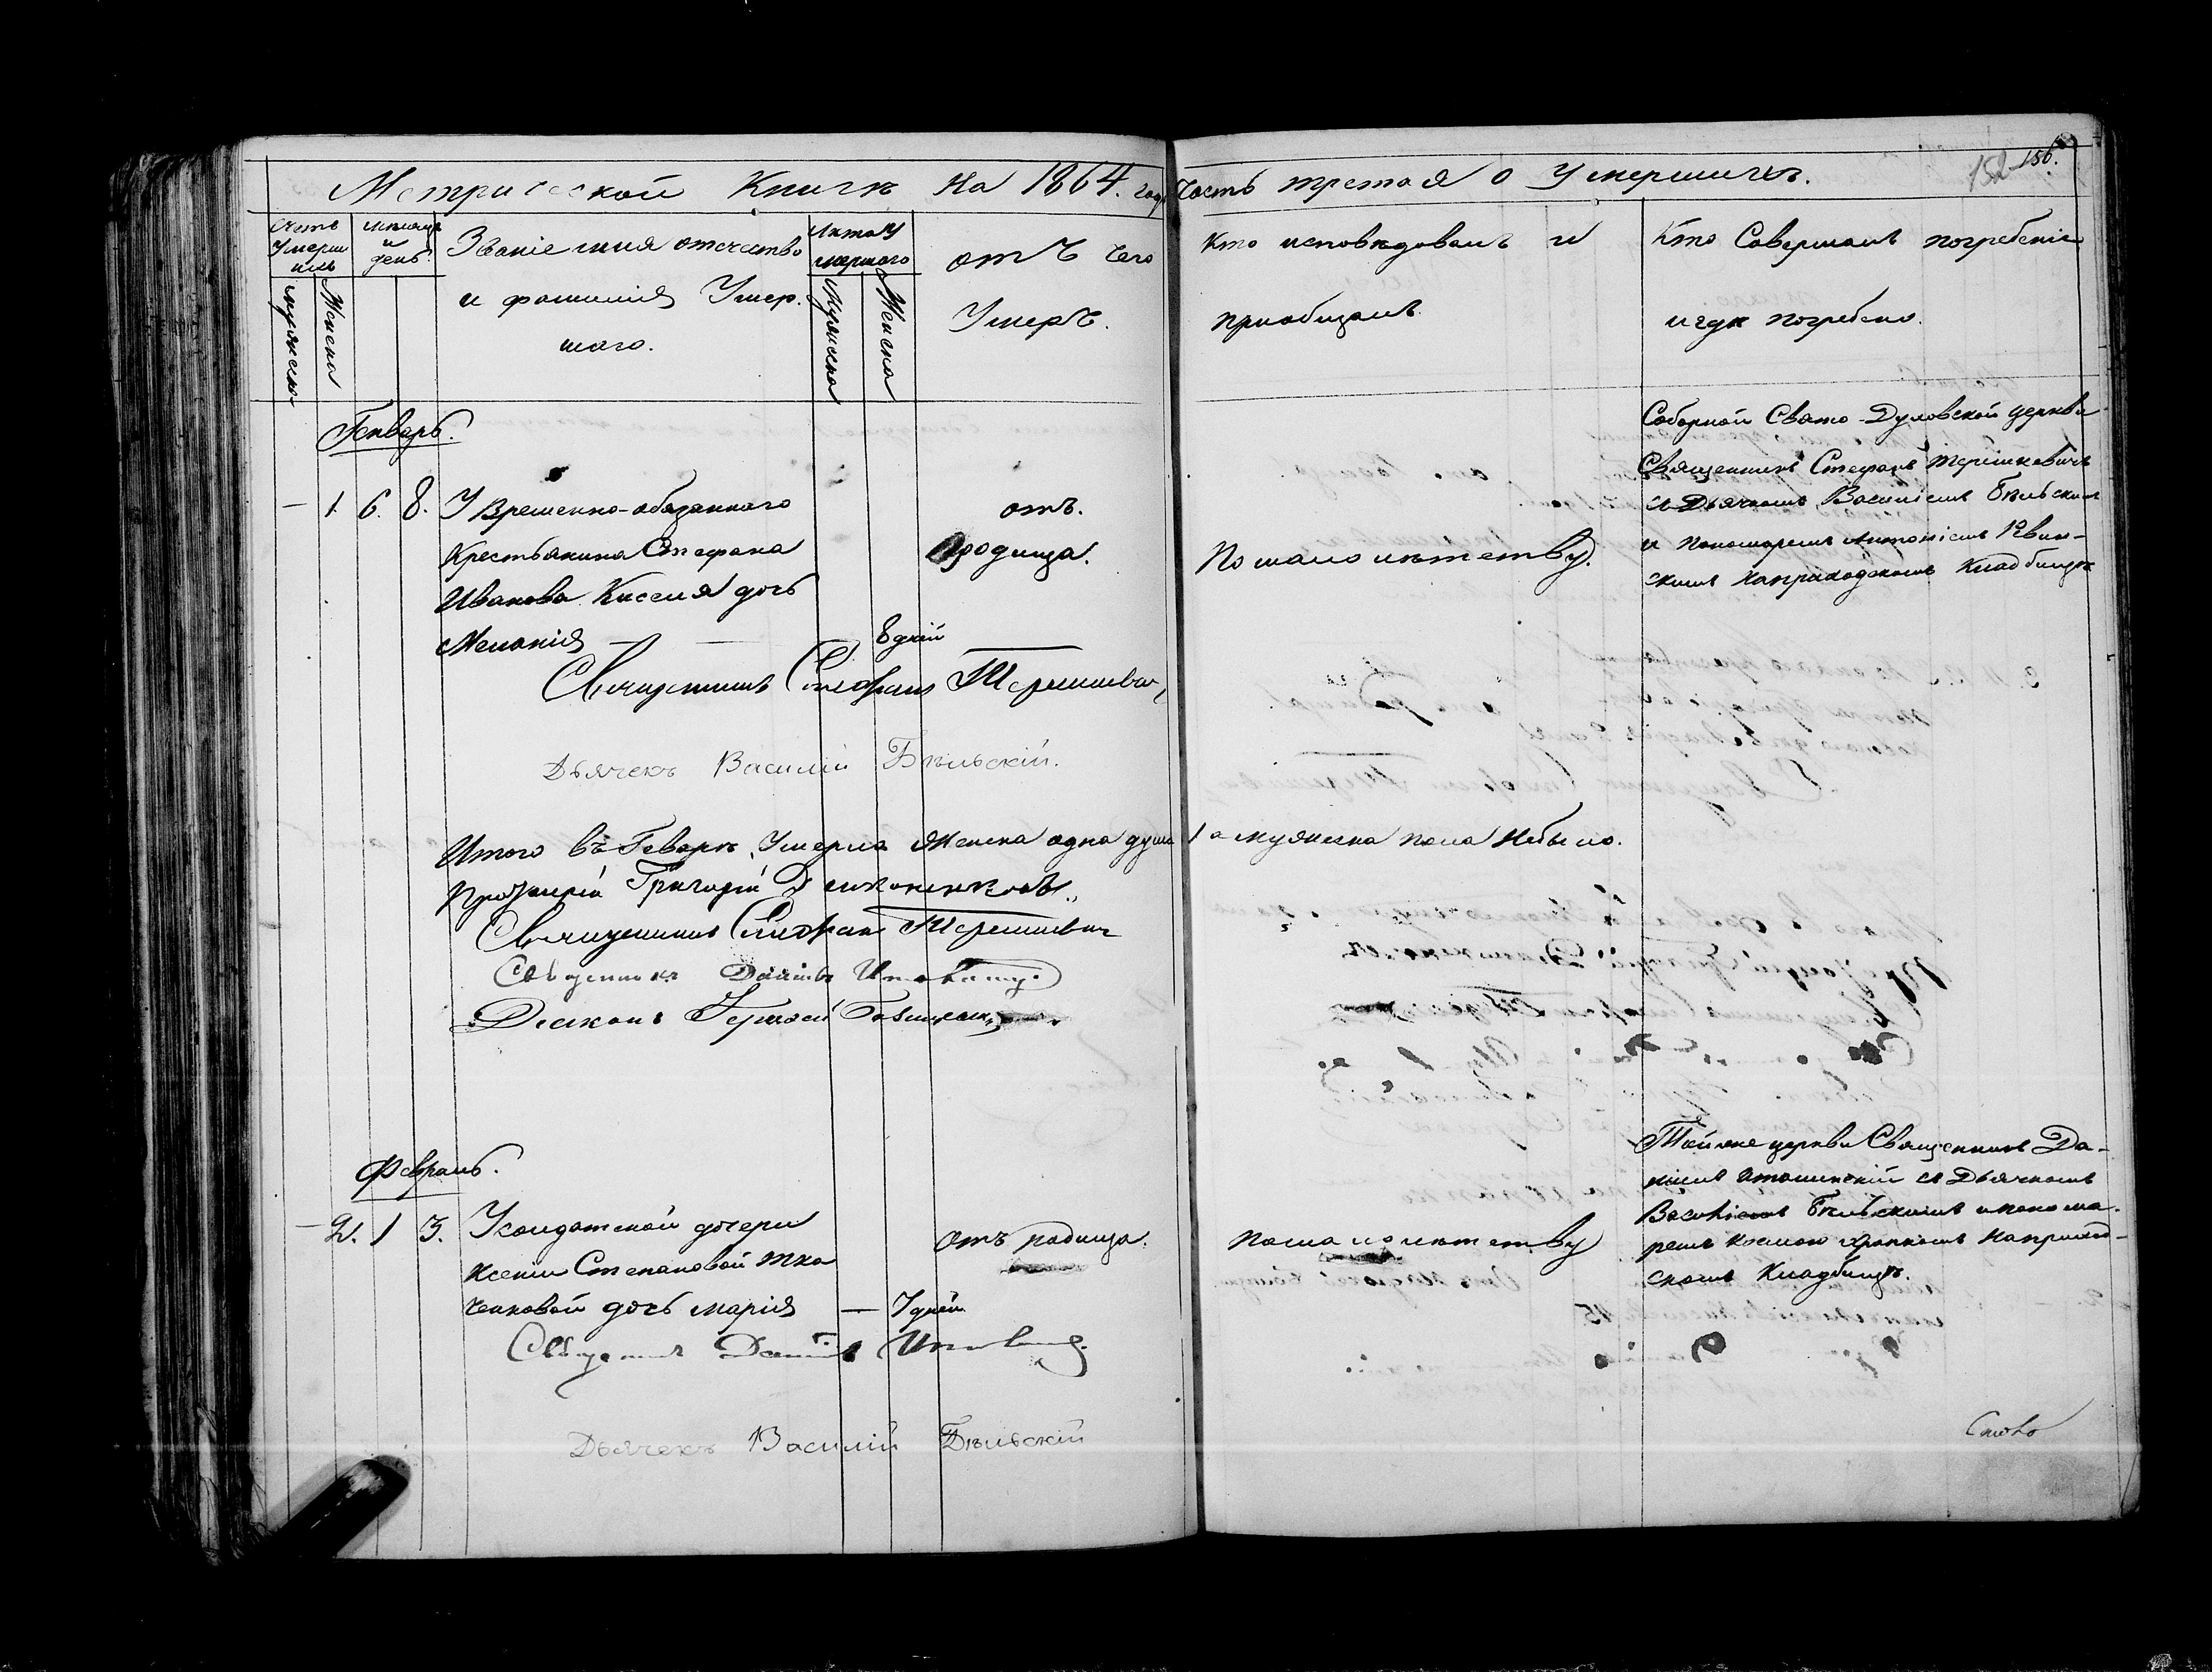 Метрической Книги на 1864. годъ часть третая о Умершихъ.
152 156.
Счетъ Умершихъ
мужеска
Женска
мѣсяцъ и день
Званіе имя отечество
и фамилія Умер-
шаго.
Лѣта Умершаго
Мужеска
Женска
отъ чего
Умеръ.
Кто исповѣдовалъ и
пріобщалъ.
Кто Совершалъ погребеніе
и гдѣ погребено.
Генварь.
— 1. 6. 8.
У Временно-обязаннаго
Крестьянина Стефана
Иванова Киселя дочь
Меланія —
8 дней
отъ
родимца.
По малолѣтству.
Соборной Свято-Духовской церкви
Священникъ Стефанъ Терешкевичъ
съ Дьячкомъ Василіемъ Бѣльскимъ
и пономаремъ Антоніемъ
скимъ на приходскомъ Кладбищѣ
Священникъ Стефанъ Терешкевичъ
Дьячекъ Василій Бѣльскій.
Итого въ Геваре Умерла Женска одна душа 1 а мужеска пола небыло.
Протоіерей Григорій
Священникъ Стефанъ Терешкевичъ
Священникъ Даніилъ
Діаконъ
Февраль.
— 2. 1 3.
У солдатской дочери
Ксеніи Степановой Тка
ченковой дочь Марія — 7 дней
отъ родимца.
По малолѣтству
Той же церкви Священникъ Да-
ніилъ съ Дьячкомъ
Василіемъ Бѣльскимъ и понома-
ремъ на приход-
скомъ Кладбищѣ.
Священникъ Даніилъ
Дьячекъ Василій Бѣльскій